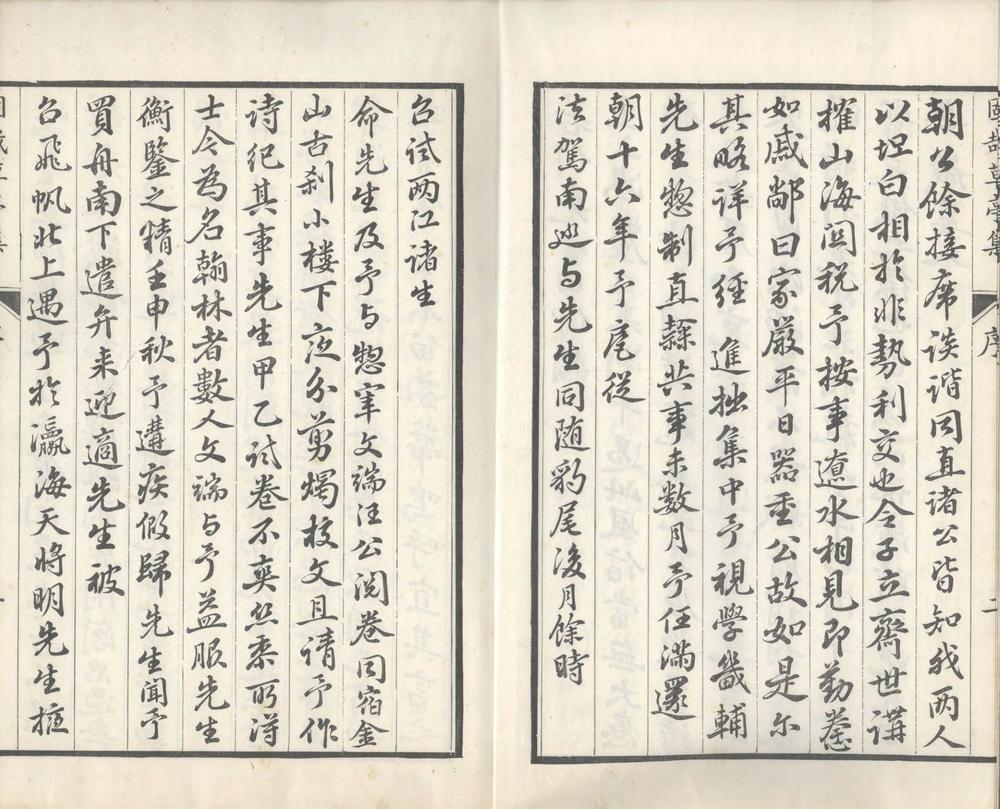 序
二
朝公餘接席談諧同直諸公皆知我兩人
以坦白相於非勢利交也令子立齋世講
榷山海関税予按事遼水相見即勤懃
如戚鄰曰家嚴平日器重公故如是尔
其略详予經進拙集中予視學畿輔
先生懃制直隸共事未数月予任满還
朝十六年予扈從
法駕南巡与先生同随豹尾後月餘時
召试两江诸生
命先生及予与惣宰文端汪公閲卷同宿金
山古刹小楼下夜分剪燭校文且请予作
诗纪其事先生甲乙试卷不爽丝黍所得
士今為名翰林者數人文端与予益服先生
衡鑒之精壬申秋予遘疾假歸先生聞予
買舟南下遣弁来迎適先生被
召飛帆北上遇予於瀛海天将明先生擁